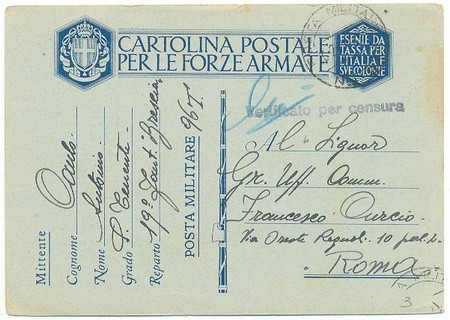 CARTOLINA POSTALE
PER LE FORZE ARMATE
ESENTE DA
TASSA PER
L'ITALIA
SUE COLONIE
POSTA MILITARE
Verificato per censura
Mittente
Cognome
Nome Antonio
Grado S. Tenente
Reparto 19° Fant. Brescia
POSTA MILITARE 96 T
Al Signor
Gr. Uff. Comm.
Francesco Curcio
Via Oreste Regnoli 10
Roma
3